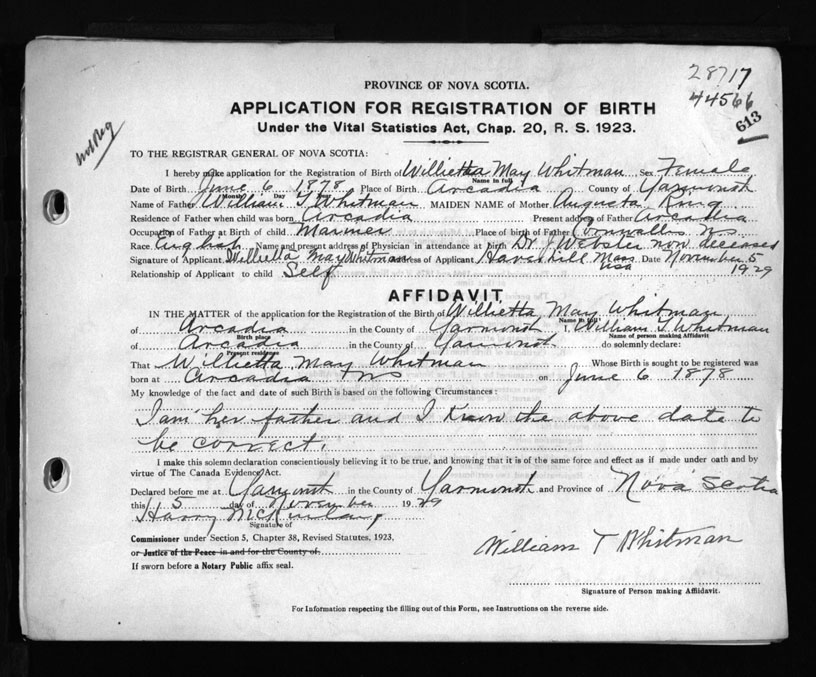 28717
44566
613
Not Reg
PROVINCE OF NOVA SCOTIA.
APPLICATION FOR REGISTRATION OF BIRTH
Under the Vital Statistics Act, Chap. 20, R. S. 1923.
TO THE REGISTRAR GENERAL OF NOVA SCOTIA:
I hereby make application for the Registration of Birth of Willietta May Whitman Sex Female
Name in full
Date of Birth June 6 1878 Place of Birth Arcadia County of Yarmouth
Month Day Year
Name of Father William T Whitman MAIDEN NAME of Mother Augusta King
Residence of Father when child was born Arcadia Present address of Father Arcadia
Occupation of Father at Birth of child Mariner Place of birth of Father Cornwallis NS
Race English Name and present address of Physician in attendance at birth Dr J Webster now deceased
Signature of Applicant Willietta May Whitman Address of Applicant Haverhill Mass USA Date November 5 1929
Relationship of Applicant to child Self
AFFIDAVIT
IN THE MATTER of the application for the Registration of the Birth of Willietta May Whitman
Name in full
of Arcadia in the County of Yarmouth I, William T Whitman
Birth place Name of person making Affidavit
of Arcadia in the County of Yarmouth do solemnly declare:
Present residence
That Willietta May Whitman Whose Birth is sought to be registered was
born at Arcadia NS on June 6 1878
My knowledge of the fact and date of such Birth is based on the following Circumstances:
I am her father and I know the above date to
be correct.
I make this solemn declaration conscientiously believing it to be true, and knowing that it is of the same force and effect as if made under oath and by
virtue of The Canada Evidence Act.
Declared before me at Yarmouth in the County of Yarmouth and Province of Nova Scotia
this 5 day of November 1929
Harry McKinlay
Signature of
Commissioner under Section 5, Chapter 38, Revised Statutes, 1923,
or Justice of the Peace in and for the County of
If sworn before a Notary Public affix seal.
William T Whitman
Signature of Person making Affidavit.
For Information respecting the filling out of this Form, see Instructions on the reverse side.